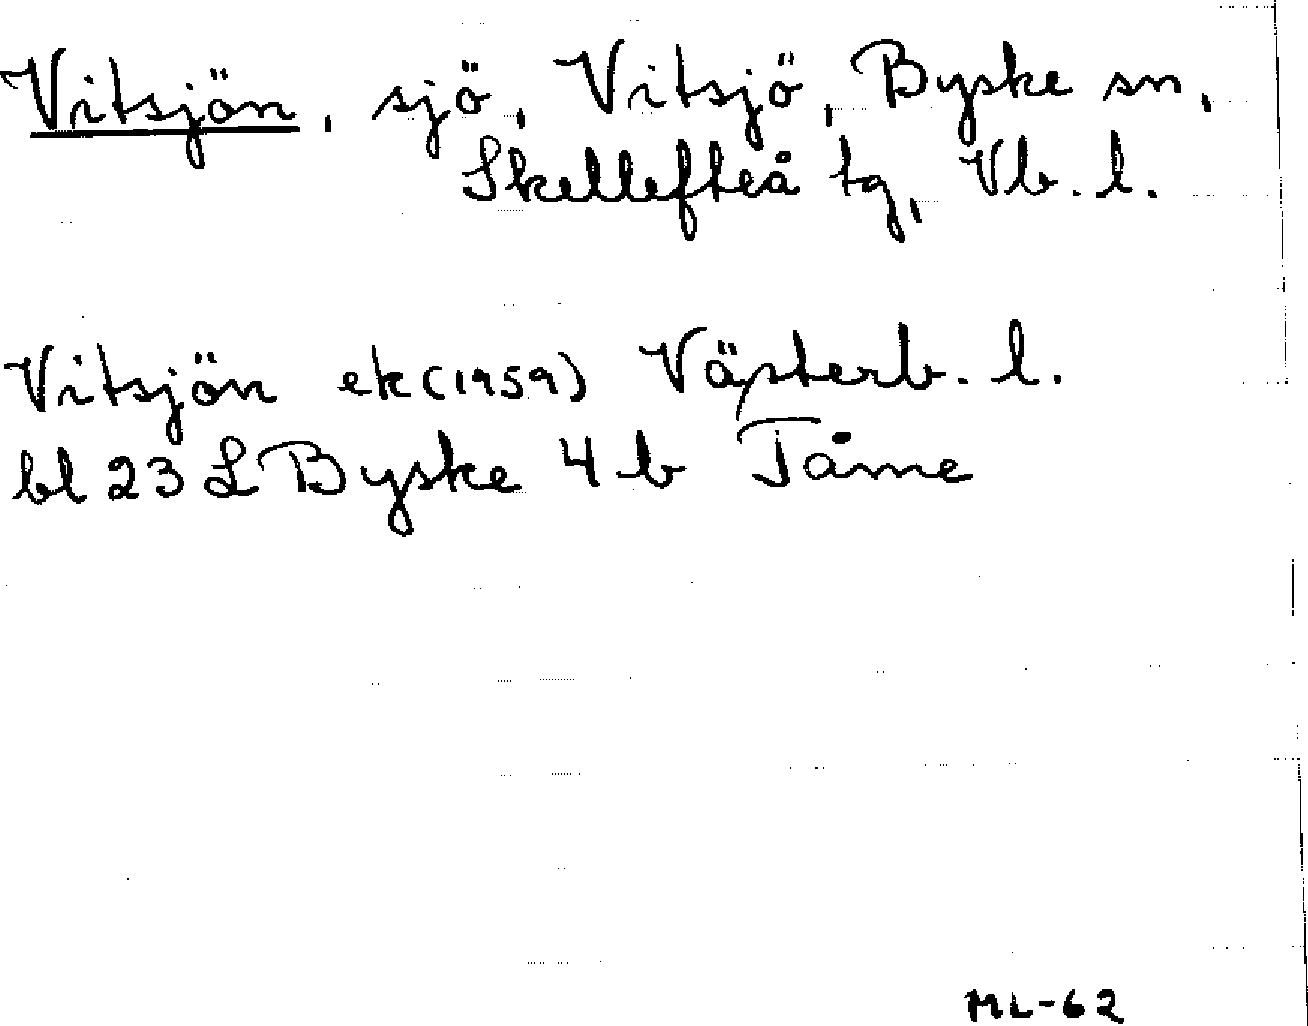 Vitsjön, sjö, Vitsjö, Byske sn,
Skellefteå tg, Vb. l.
Vitsjön ek (1959) Västerb. l.
bl 23 L Byske 4 b Tåme
ML-62